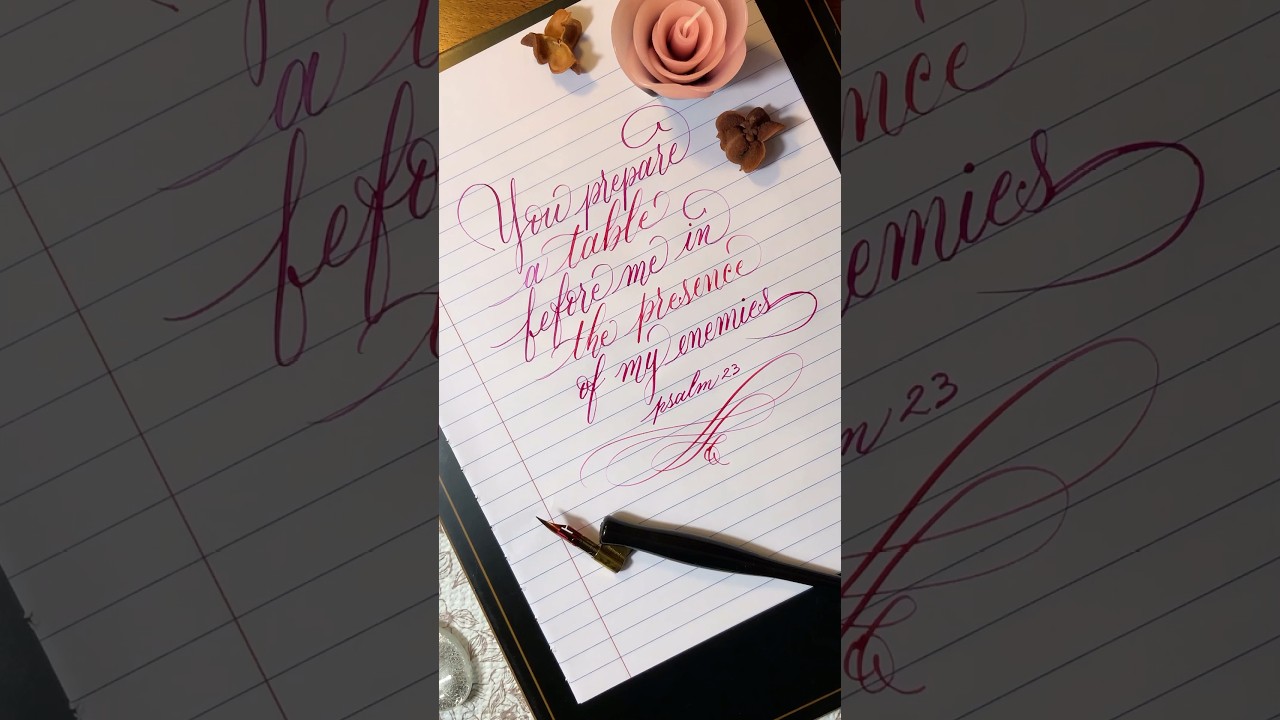 You prepare
a table
before me in
the presence
of my enemies
psalm 23